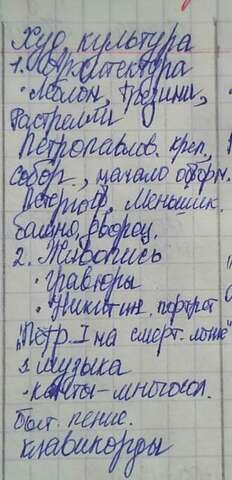 Худ. культура
1. Архитектура
• Леблон, Трезини,
Растрелли
Петропавлов. креп.,
собор, начало оформ.
Петергоф. Меньшик.
башню, дворец.
2. Живопись
• гравюры
• Никитин. портрет
"Петр I на смерт. ложе"
3. музыка
• канты - многогол.
быт. пение.
клавикорды